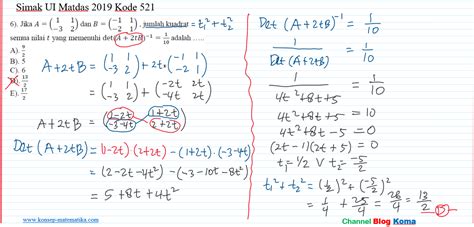 Simak UI Matdas 2019 Kode 521
6). Jika A = ( 1 1 -3 2 ) dan B = ( -1 1 -2 1 ), jumlah kuadrat = t₁² + t₂²
semua nilai t yang memenuhi det(A + 2tB)⁻¹ = 1/10 adalah .....
A). 9/2
B). 5
C). 6
D). 13/2
E). 17/2
A+2tB = ( 1 1 -3 2 ) + 2t·( -1 1 -2 1 )
= ( 1 1 -3 2 ) + ( -2t 2t -4t 2t )
A+2tB = ( 1-2t 1+2t -3-4t 2+2t )
Det (A+2tB) = (1-2t)(2+2t) - (1+2t)·(-3-4t)
= (2-2t-4t²) - (-3-10t-8t²)
= 5+8t+4t²
www.konsep-matematika.com
Det (A+2tB)⁻¹ = 1/10
1/Det(A+2tB) = 1/10
1/4t²+8t+5 = 1/10
4t²+8t+5 = 10
4t²+8t-5 = 0
(2t-1)(2t+5) = 0
t₁ = 1/2 V t₂ = -5/2
t₁²+t₂² = (1/2)² + (-5/2)²
= 1/4 + 25/4 = 26/4 = 13/2 D
Channel Blog Koma